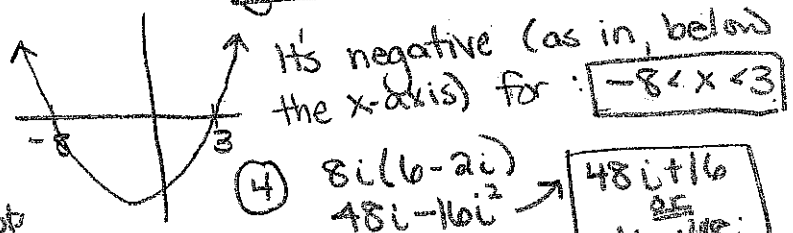 It's negative (as in, below
the x-axis) for : -8 < x < 3
-8
3
④ 8i(6-2i)
48i-16i² → 48i+16
or